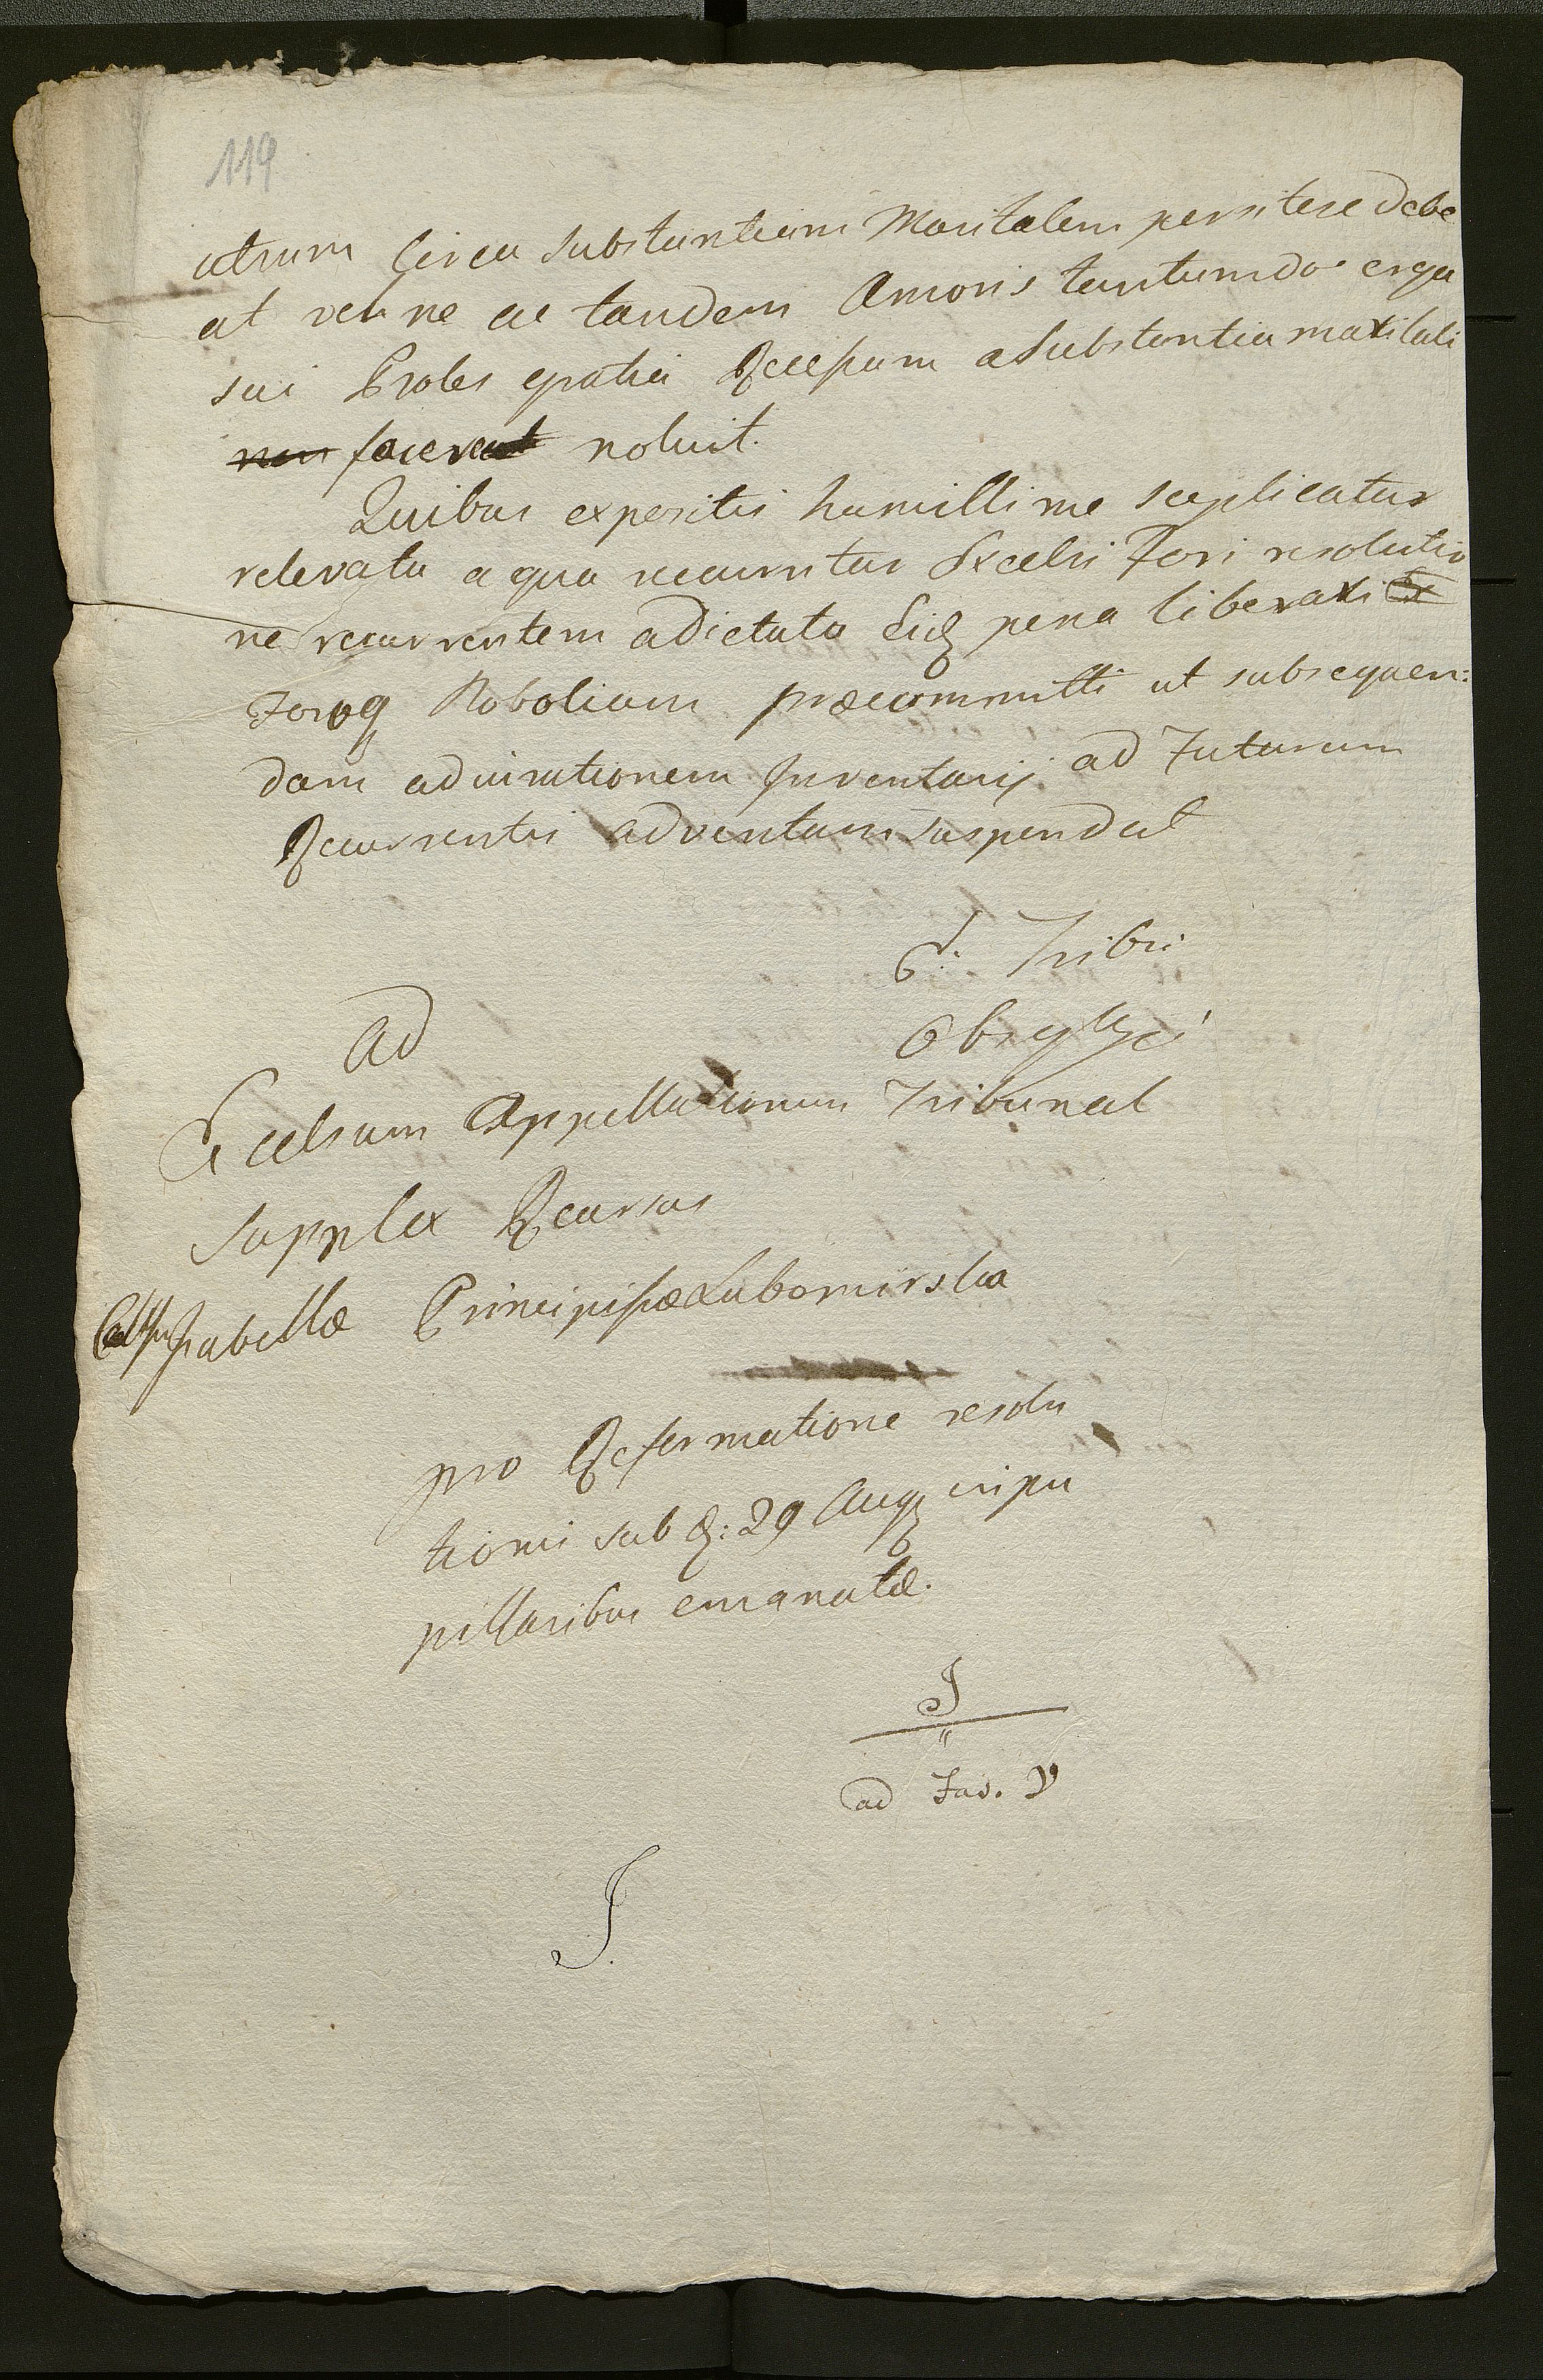 119
utrum circa substantiam Maritalem persistere debe
at vel ne ac tandem Amoris tantum do erga
sui Proles gratia Recessum a Substantia maritali
non facere noluit.
Quibus expositis humillime suplicatur
relevata a qua recurritur Excelsi Fori resolutio
ne recurrentem a dictata pena liberari
Foroq Nobilium præcommitti ut subsequen:
dam adjurationem Inventarij ad Futurum
Recurrentis adventum suspendat
E: Tribu
Ad
Excelsum Appellationum Tribunal
Supplex Recursus
Isabellæ Principissæ Lubomirska
pro Reformatione resolu
tionis sub d: 29 Aug in pu
pillaribus emanatæ.
J
ad Fas.
J.